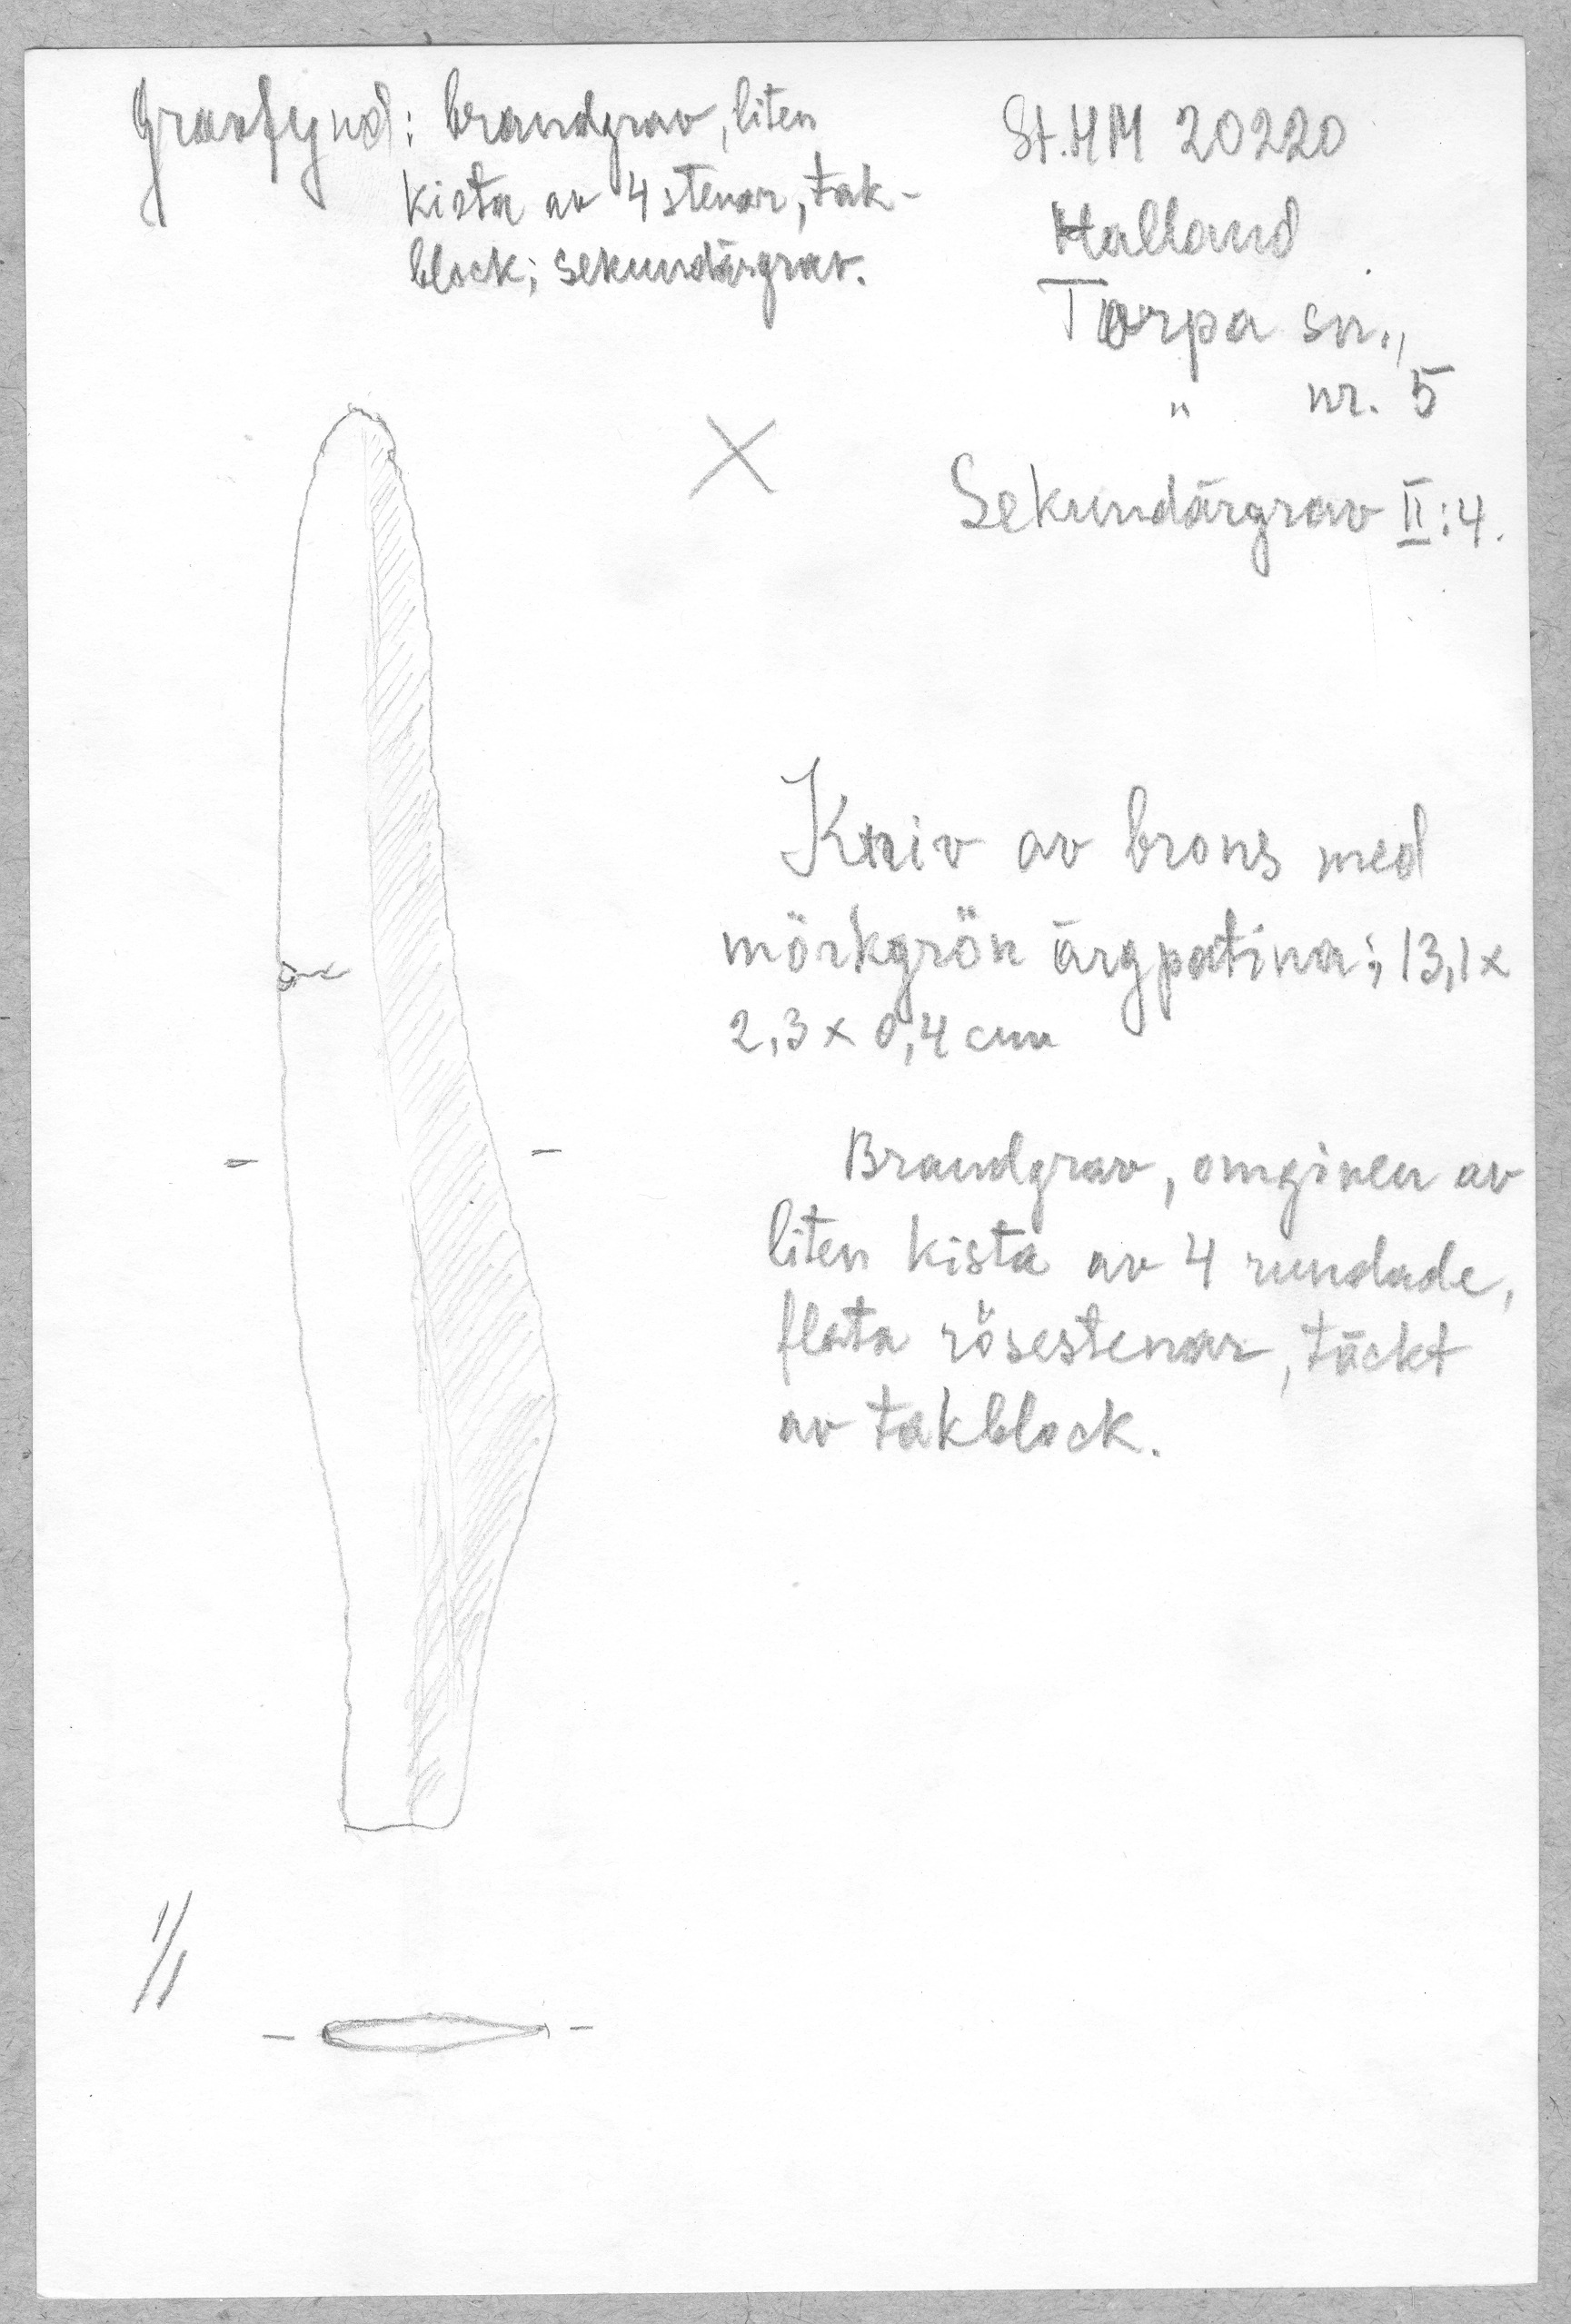 Gravfynd: brandgrav, liten
kista av 4 stenar, tak-
block; sekundärgrav.
St.HM 20220
Halland
Torpa sn.,
" nr. 5
Sekundärgrav II:4.
Kniv av brons med
mörkgrön ärgpatina; 13,1 x
2,3 x 0,4 cm
Brandgrav, omgiven av
liten kista av 4 rundade,
flata rösestenar, täckt
av takblock.
1/1